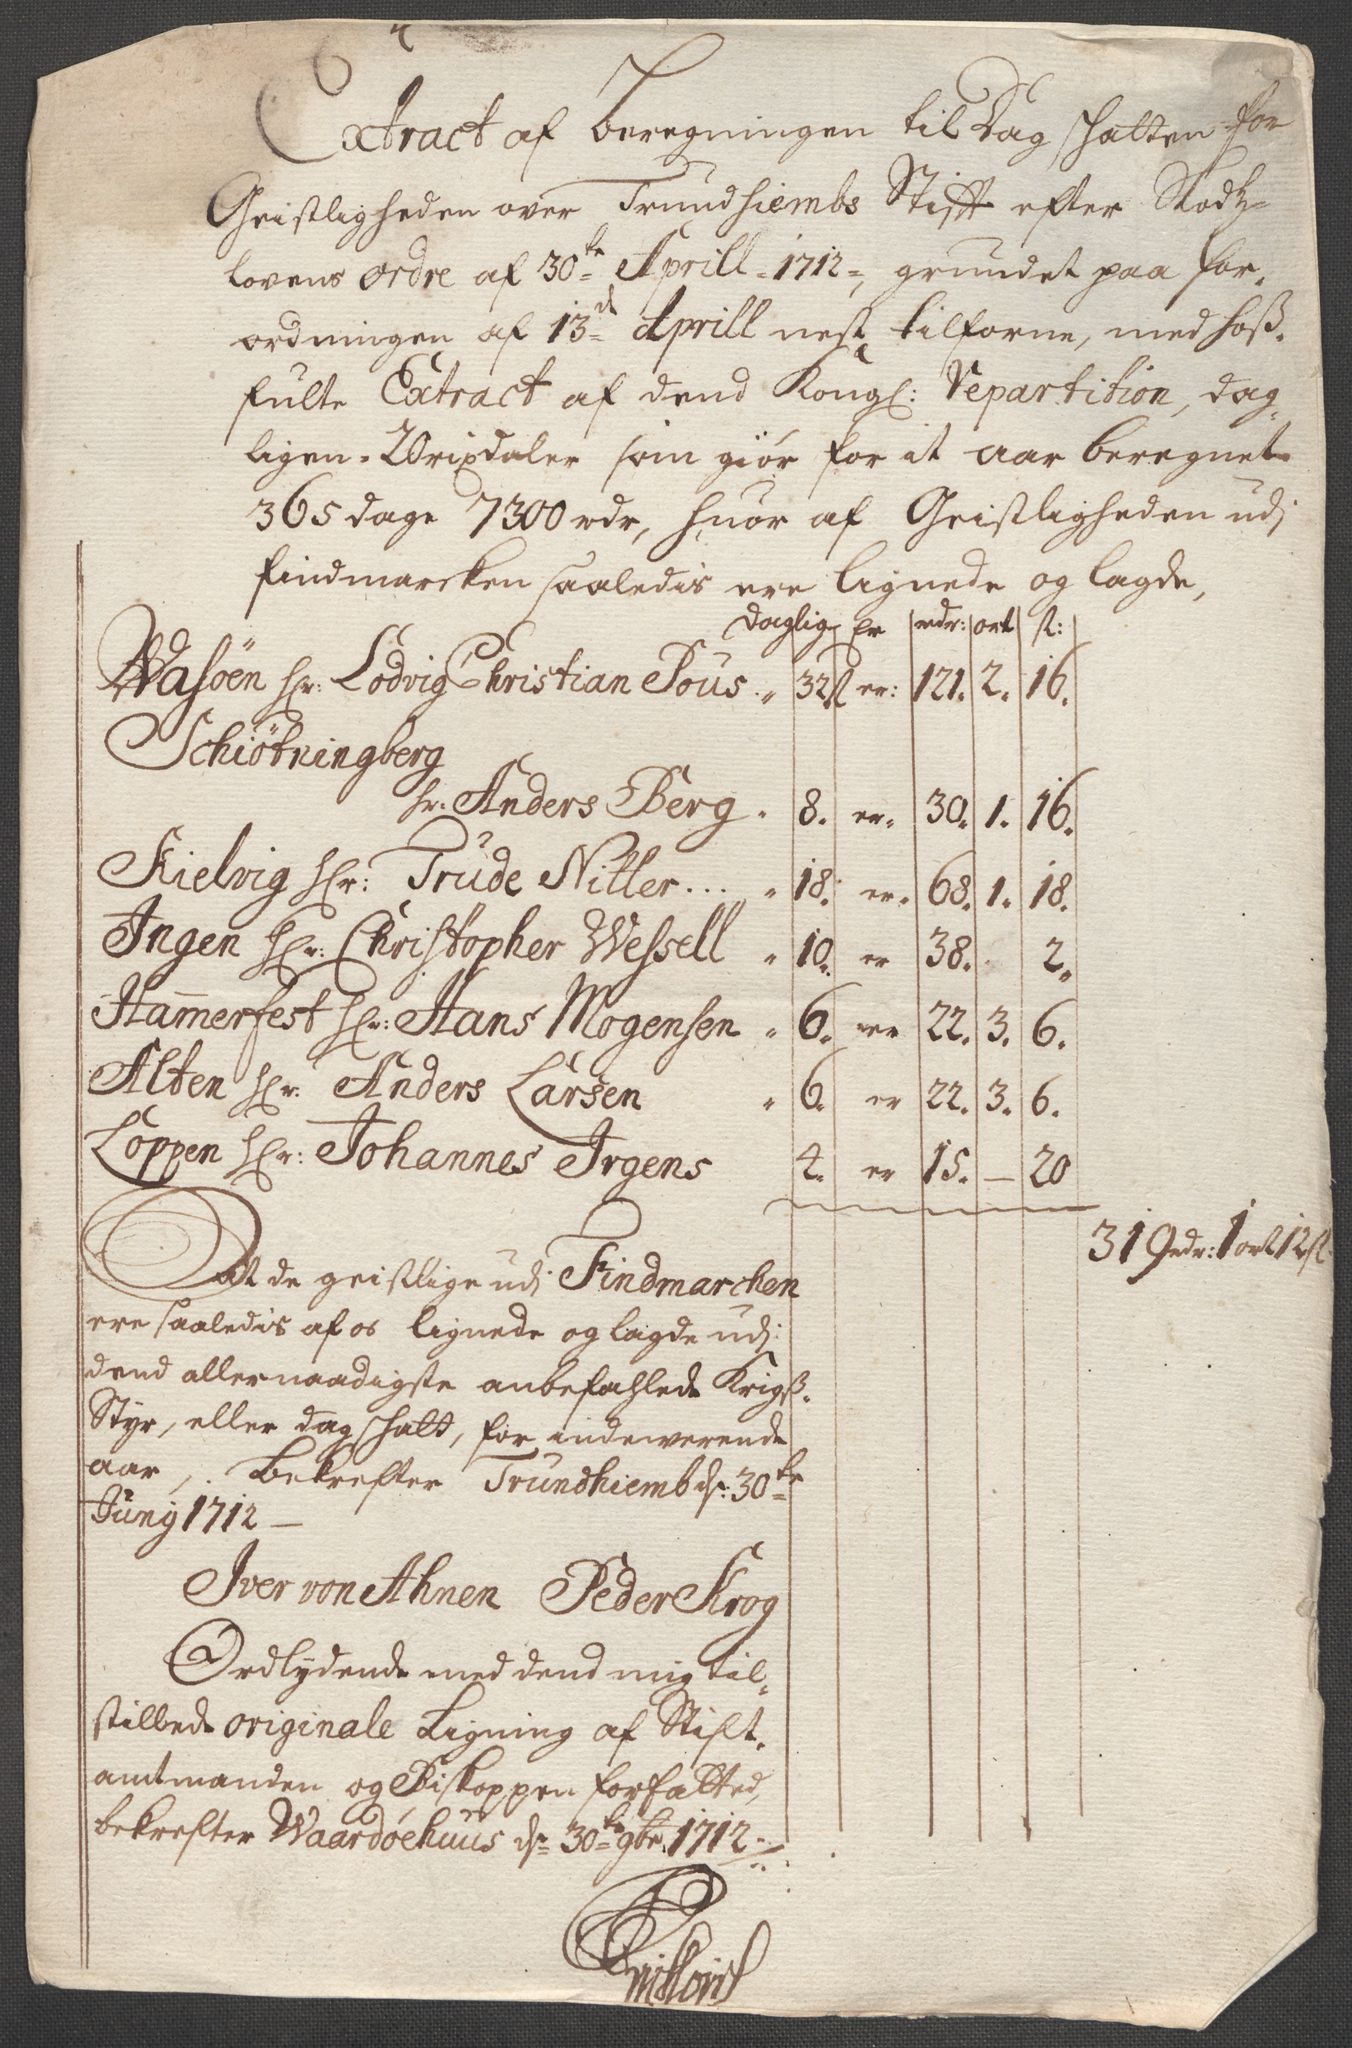 Extract af beregningen til dag skatten for
Geistligheden over Trundhiembs Stift efter Stadtz-
lovens ordre af 30te Aprill 1712, grundet paa for-
ordningen af 13de Aprill nest tilforne, med hoß-
fulte Extract af dend Kongl: Repartition, dag-
ligen 20 rixdaler som giør for it aar beregnet
365 dage 7300 rdr, huor af Geistligheden udj
findmarcken saaledis ere lignede og lagde,
daglig er rdr: ort ſ:
Wasöen hr: Lodvig Christian Pous 32 ſ er: 121. 2. 16.
Schiötningberg
hr: Anders Berg 8. er 30. 1. 16.
Kielvig hr: Trude Nitter... 18. er 68. 1. 18.
Ingen hr: Christopher Wessell 10. er 38. 2.
Hammerfest hr: Hans Mogensen 6. er 22. 3. 6.
Alten hr: Anders Larsen 6. er 22. 3. 6.
Loppen hr: Johannes Irgens 4. er 15. — 20
319 rdr: 1 ort 12 ſ
At de geistlige udj Findmarchen
ere saaledis af os lignede og lagde udj
dend allernaadigste anbefahlede Krigß-
Styr, eller dag skatt, for indeverende
aar, bekrefter Trundhiemb d: 30te
Junÿ 1712 —
Iver von Ahnen Peder Krog
Ordlydende med dend mig til-
stillede originale Ligning af Stift-
amtmanden og Biskoppen forfatted,
bekrefter Waardøehuus d: 30te 9br. 1712